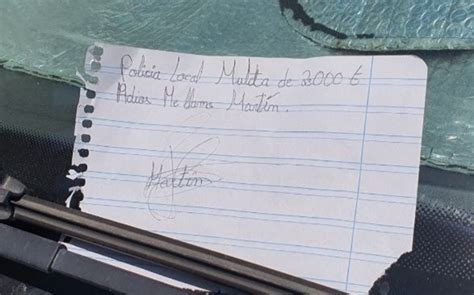 Policia Local Multa de 2000 €
Adios Me llamo Martín.
Martín